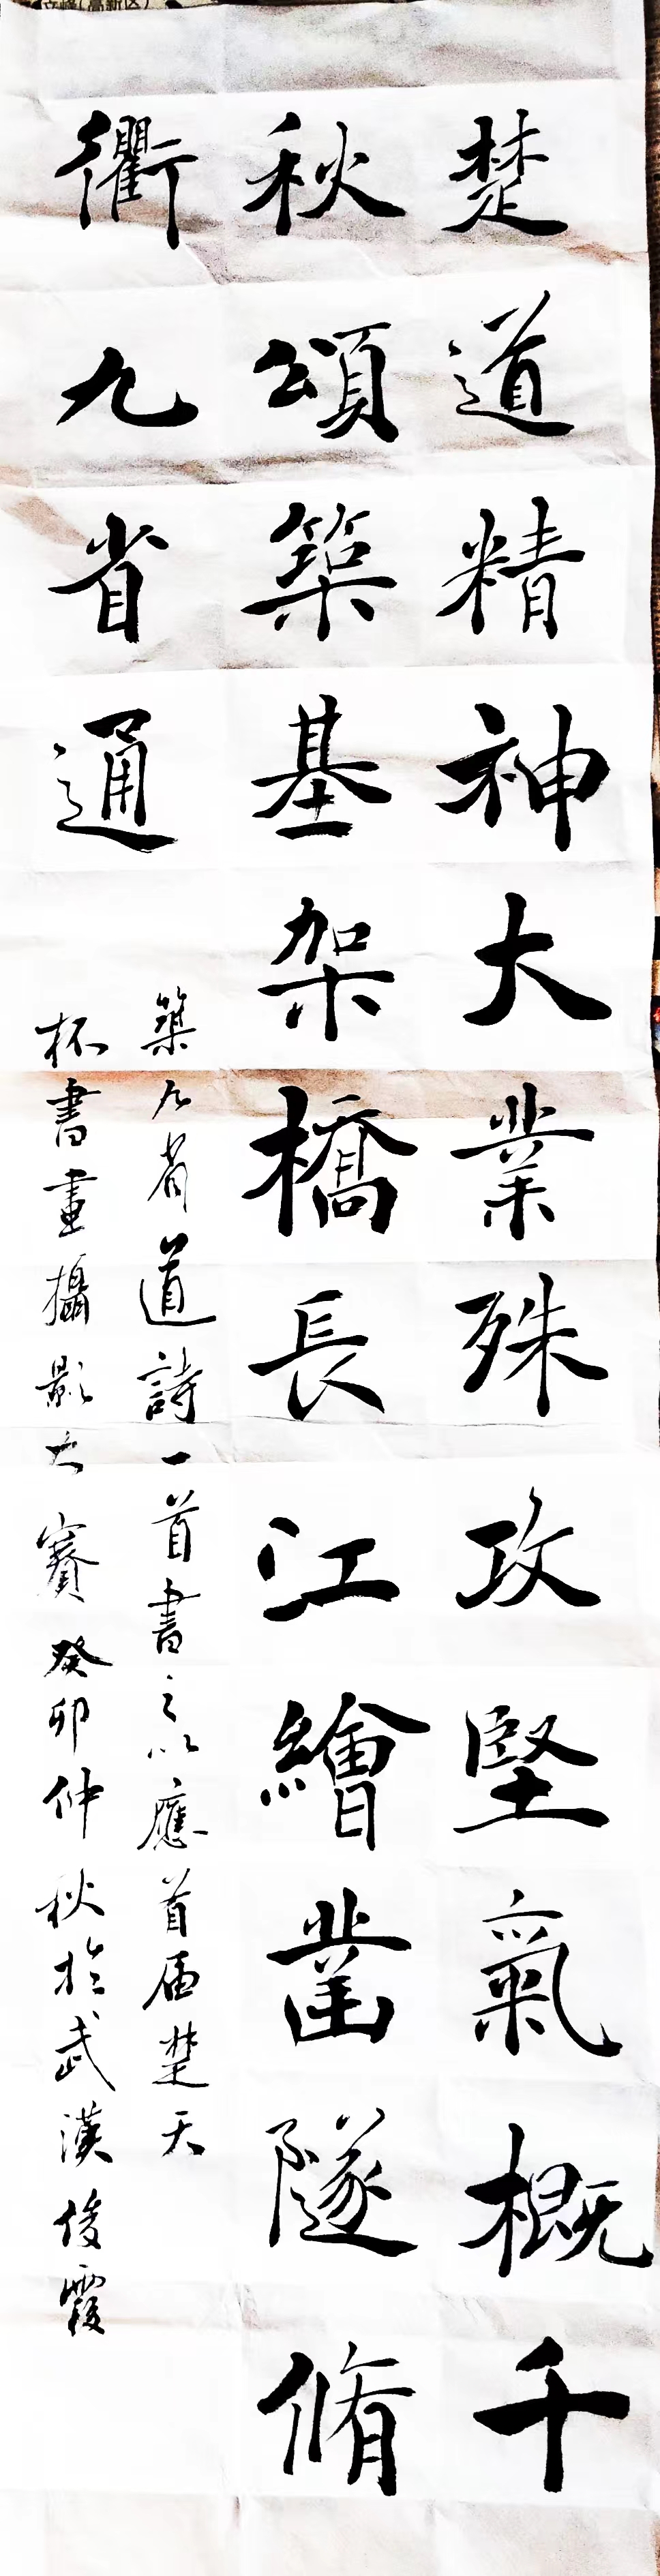 楚道精神大業殊攻堅氣概千
秋頌築基架橋長江繪凿隧脩
衢九省通
築九省道詩一首書之以應首届楚天
杯書畫攝影大賽癸卯仲秋於武漢俊霞